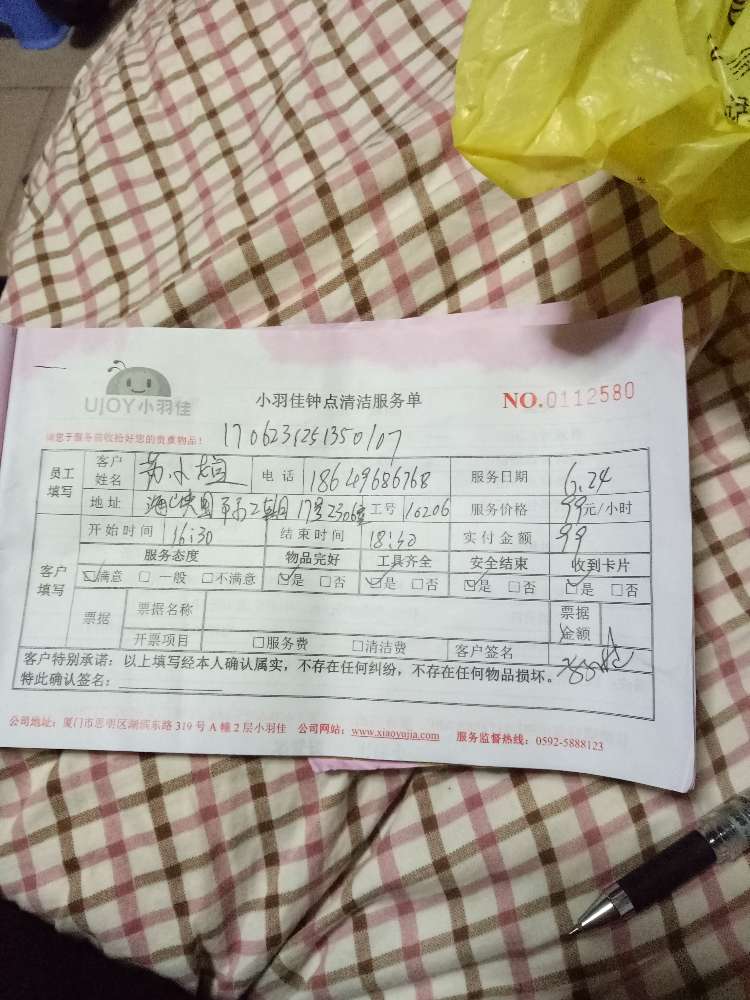 UJOY小羽佳
小羽佳钟点清洁服务单
NO.0112580
请您于服务前收拾好您的贵重物品!
1706231251350107
员工填写 客户姓名 苏小 电话 18649686768 服务日期 6.24
地址 海峡国际 17号2306 工号 10206 服务价格 99元/小时
客户填写 开始时间 16:30 结束时间 18:40 实付金额 99
服务态度 物品完好 工具齐全 安全结束 收到卡片
☑满意 □一般 □不满意 ☑是 □否 ☑是 □否 ☑是 □否 ☑是 □否
票据 票据名称 票据金额
开票项目 □服务费 □清洁费 客户签名
客户特别承诺:以上填写经本人确认属实,不存在任何纠纷,不存在任何物品损坏。
特此确认签名:
公司地址:厦门市思明区湖滨东路319号A幢2层小羽佳 公司网站:www.xiaoyujia.com 服务监督热线:0592-5888123